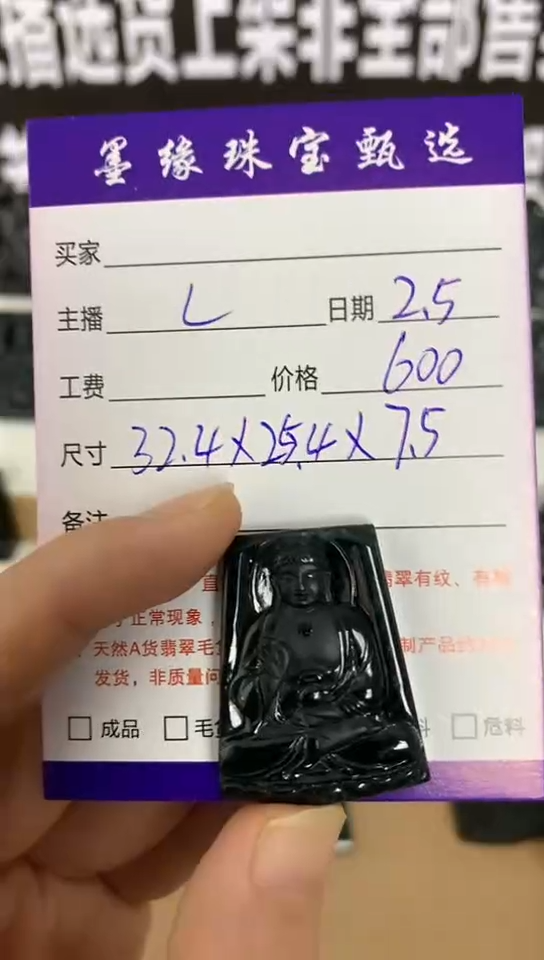 播选货上架非全部售
墨缘珠宝甄选
买家
主播 L 日期 2.5
工费 价格 600
尺寸 32.4×25.4×7.5
备注
翡翠有纹、有
正常现象，
天然A货翡翠毛 制产品
发货，非质量问
成品 毛 料 危料